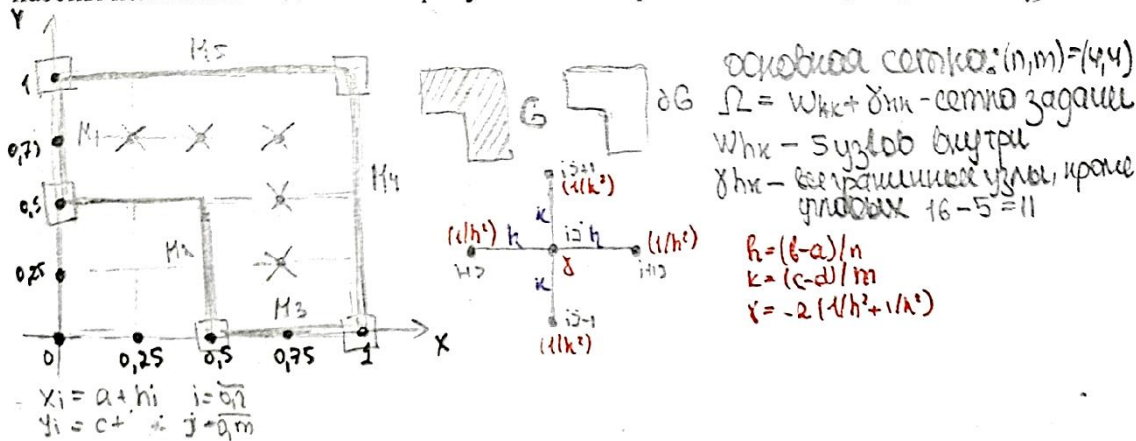 Y
1
0,75
0,5
0,25
0
0,25
0,5
0,75
1
X
M5
M1
M4
M2
M3
G
∂G
ij+1
(1/k²)
(1/h²)
h
k
ij
h
(1/h²)
γ
k
i+1j
ij-1
(1/k²)
основная сетка: (n,m)=(4,4)
Ω = Whk + γhk - сетка задачи
Whk - 5 узлов внутри
γhk - все граничные узлы, кроме
угловых 16-5=11
h=(b-a)/n
k=(c-d)/m
γ=-2(1/h²+1/k²)
xi = a + hi i=0,n
yi = c+ j=0,m